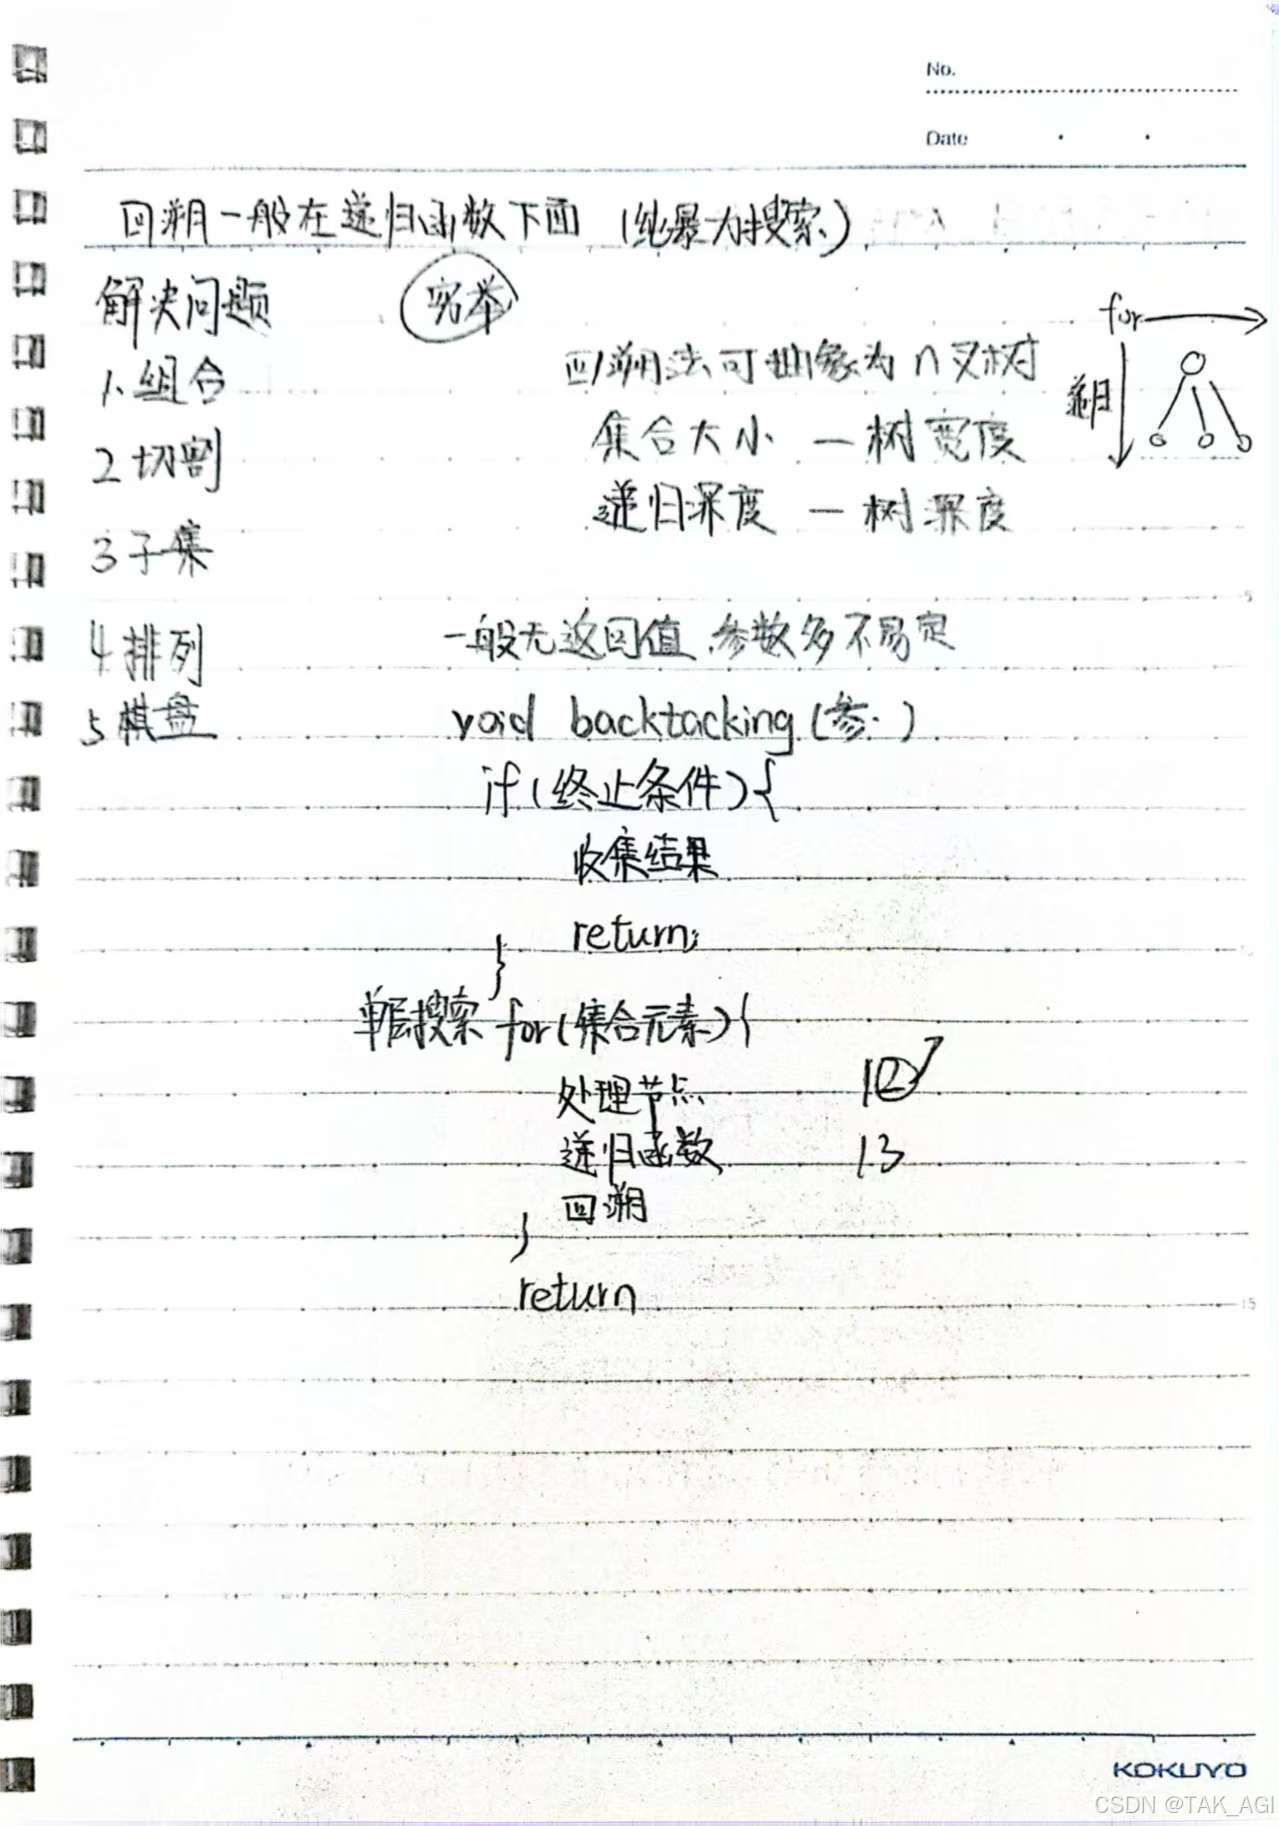 No.
Date
回溯一般在递归函数下面 (纯暴力搜索)
解决问题
穷举
1、组合
2 切割
3 子集
4 排列
5 棋盘
for
递归
回溯法可抽象为n叉树
集合大小 — 树宽度
递归深度 — 树深度
一般无返回值,参数多不易定
void backtacking (参..)
if (终止条件) {
收集结果
return;
}
单层搜索 for (集合元素) {
处理节点
递归函数
回溯
}
return
1 2
1 3
5
15
KOKUYO
CSDN @TAK_AGI